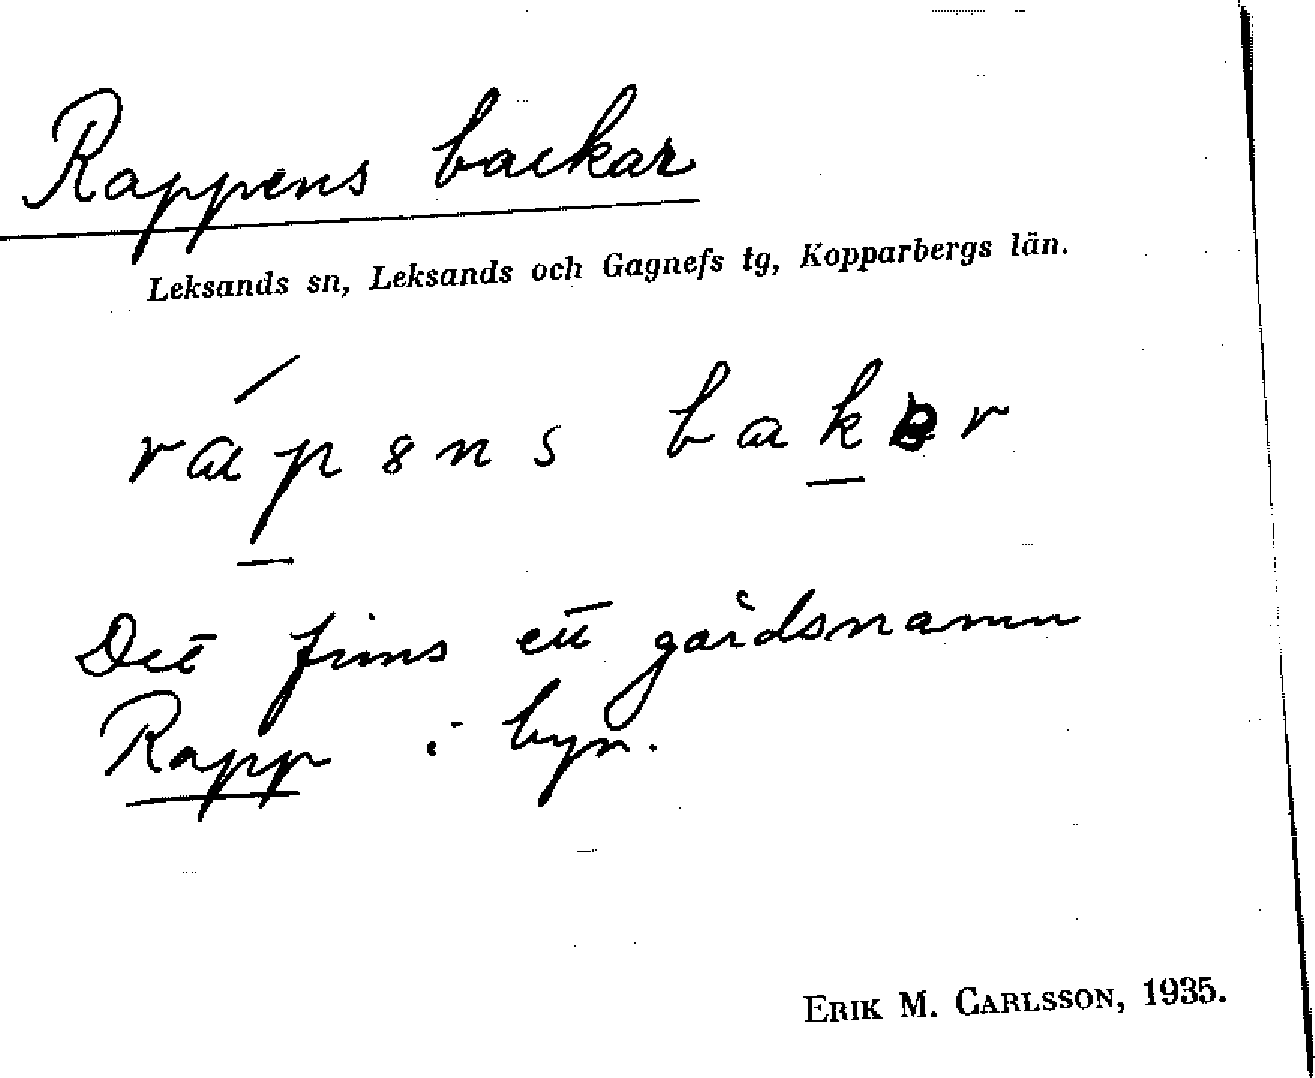 Rappens backar
Leksands sn, Leksands och Gagnefs tg, Kopparbergs län.
rápəns bakər
Det finns ett gårdsnamn
Rapp i byn.
ERIK M. CARLSSON, 1935.